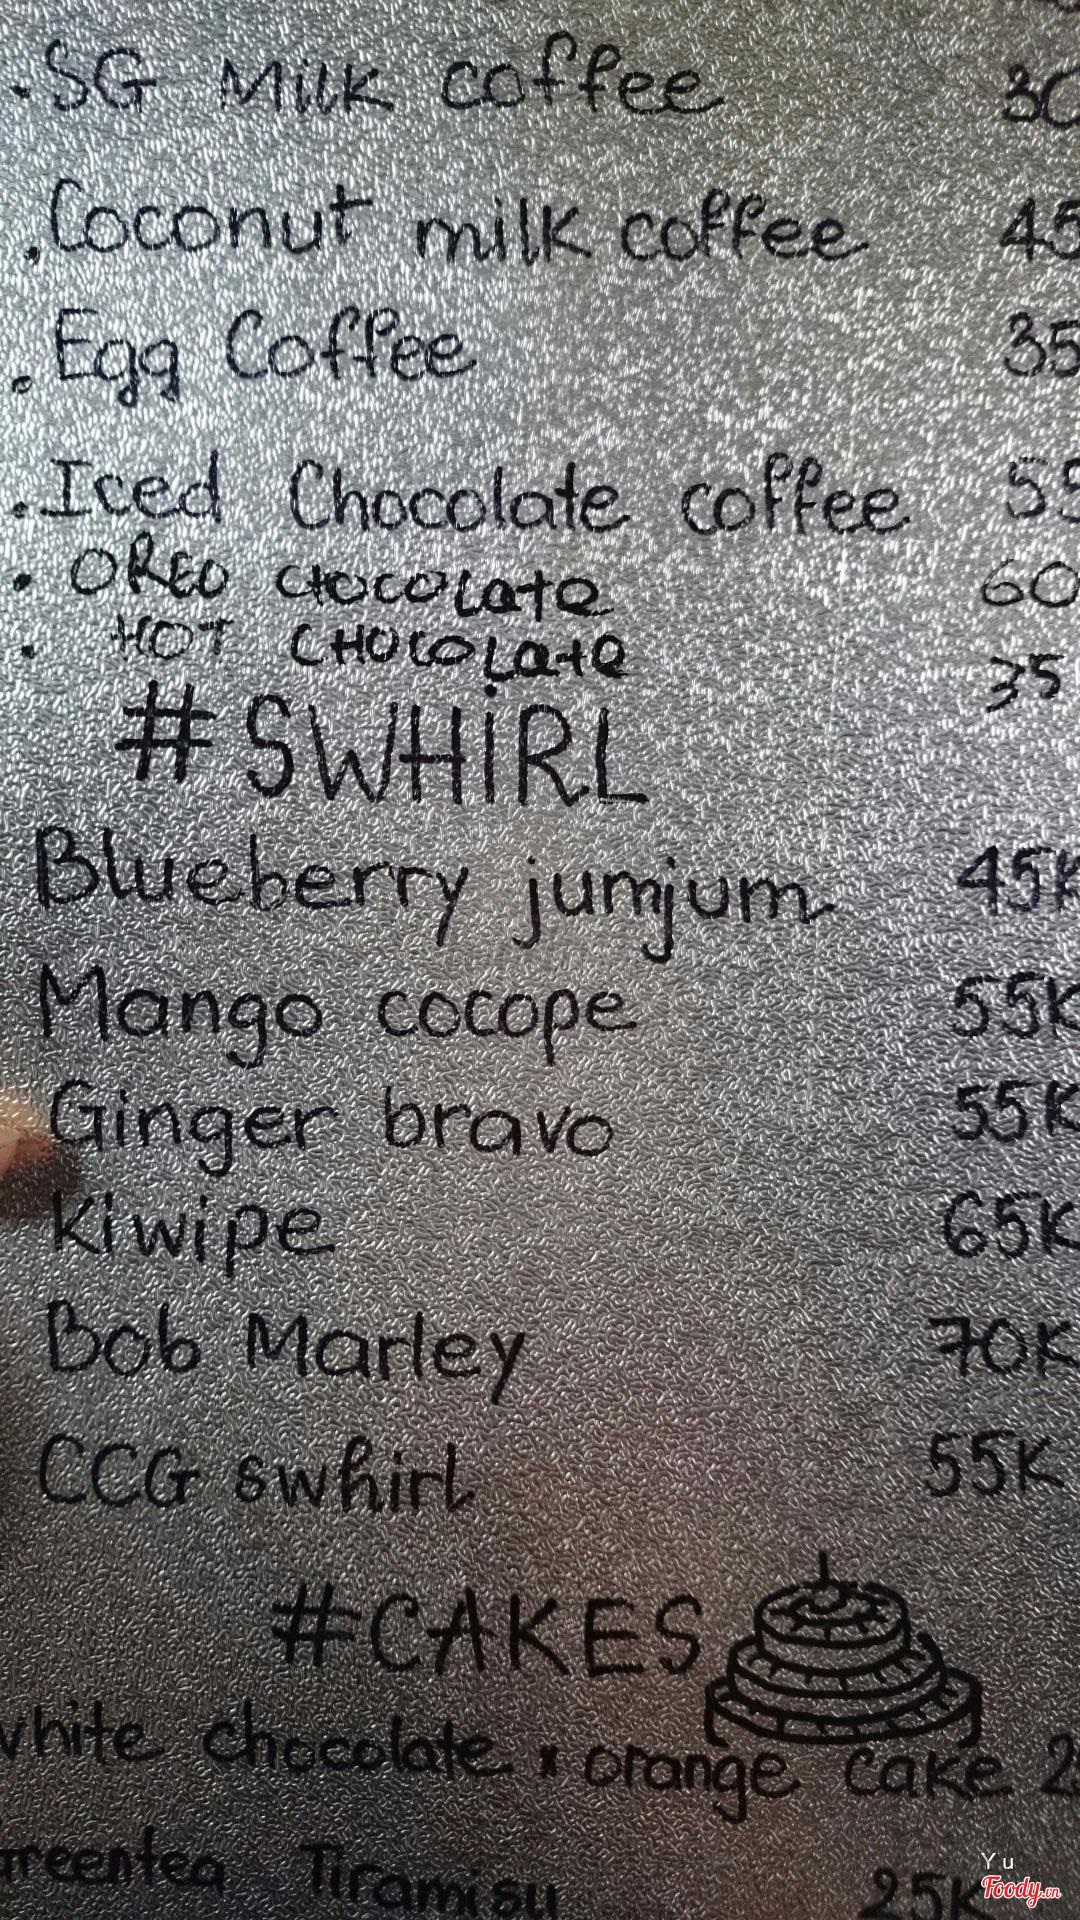 . SG Milk coffee 30
. Coconut milk coffee 45
. Egg Coffee 35
. Iced Chocolate coffee 55
. OREO CHOCOLATE 60
. HOT CHOCOLATE 35
#SWHIRL
Blueberry jumjum 45K
Mango cocope 55K
Ginger bravo 55K
Kiwipe 65K
Bob Marley 70K
CCG swhirl 55K
#CAKES
white chocolate x orange cake 2
Greentea Tiramisu 25K
Yu
Foody.vn